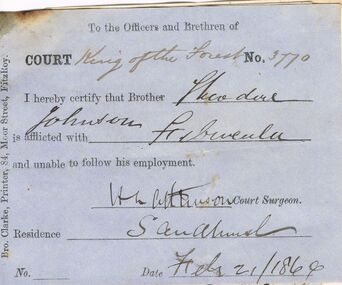 To the Officers and Brethren of
COURT King of the Forest No. 3770
I hereby certify that Brother Theodore
Johnson
is afflicted with
and unable to follow his employment.
Court Surgeon.
Residence Sandhurst
No. Date Feb 21/186
Bro. Clarke, Printer, 84, Moor Street, FitzRoy.